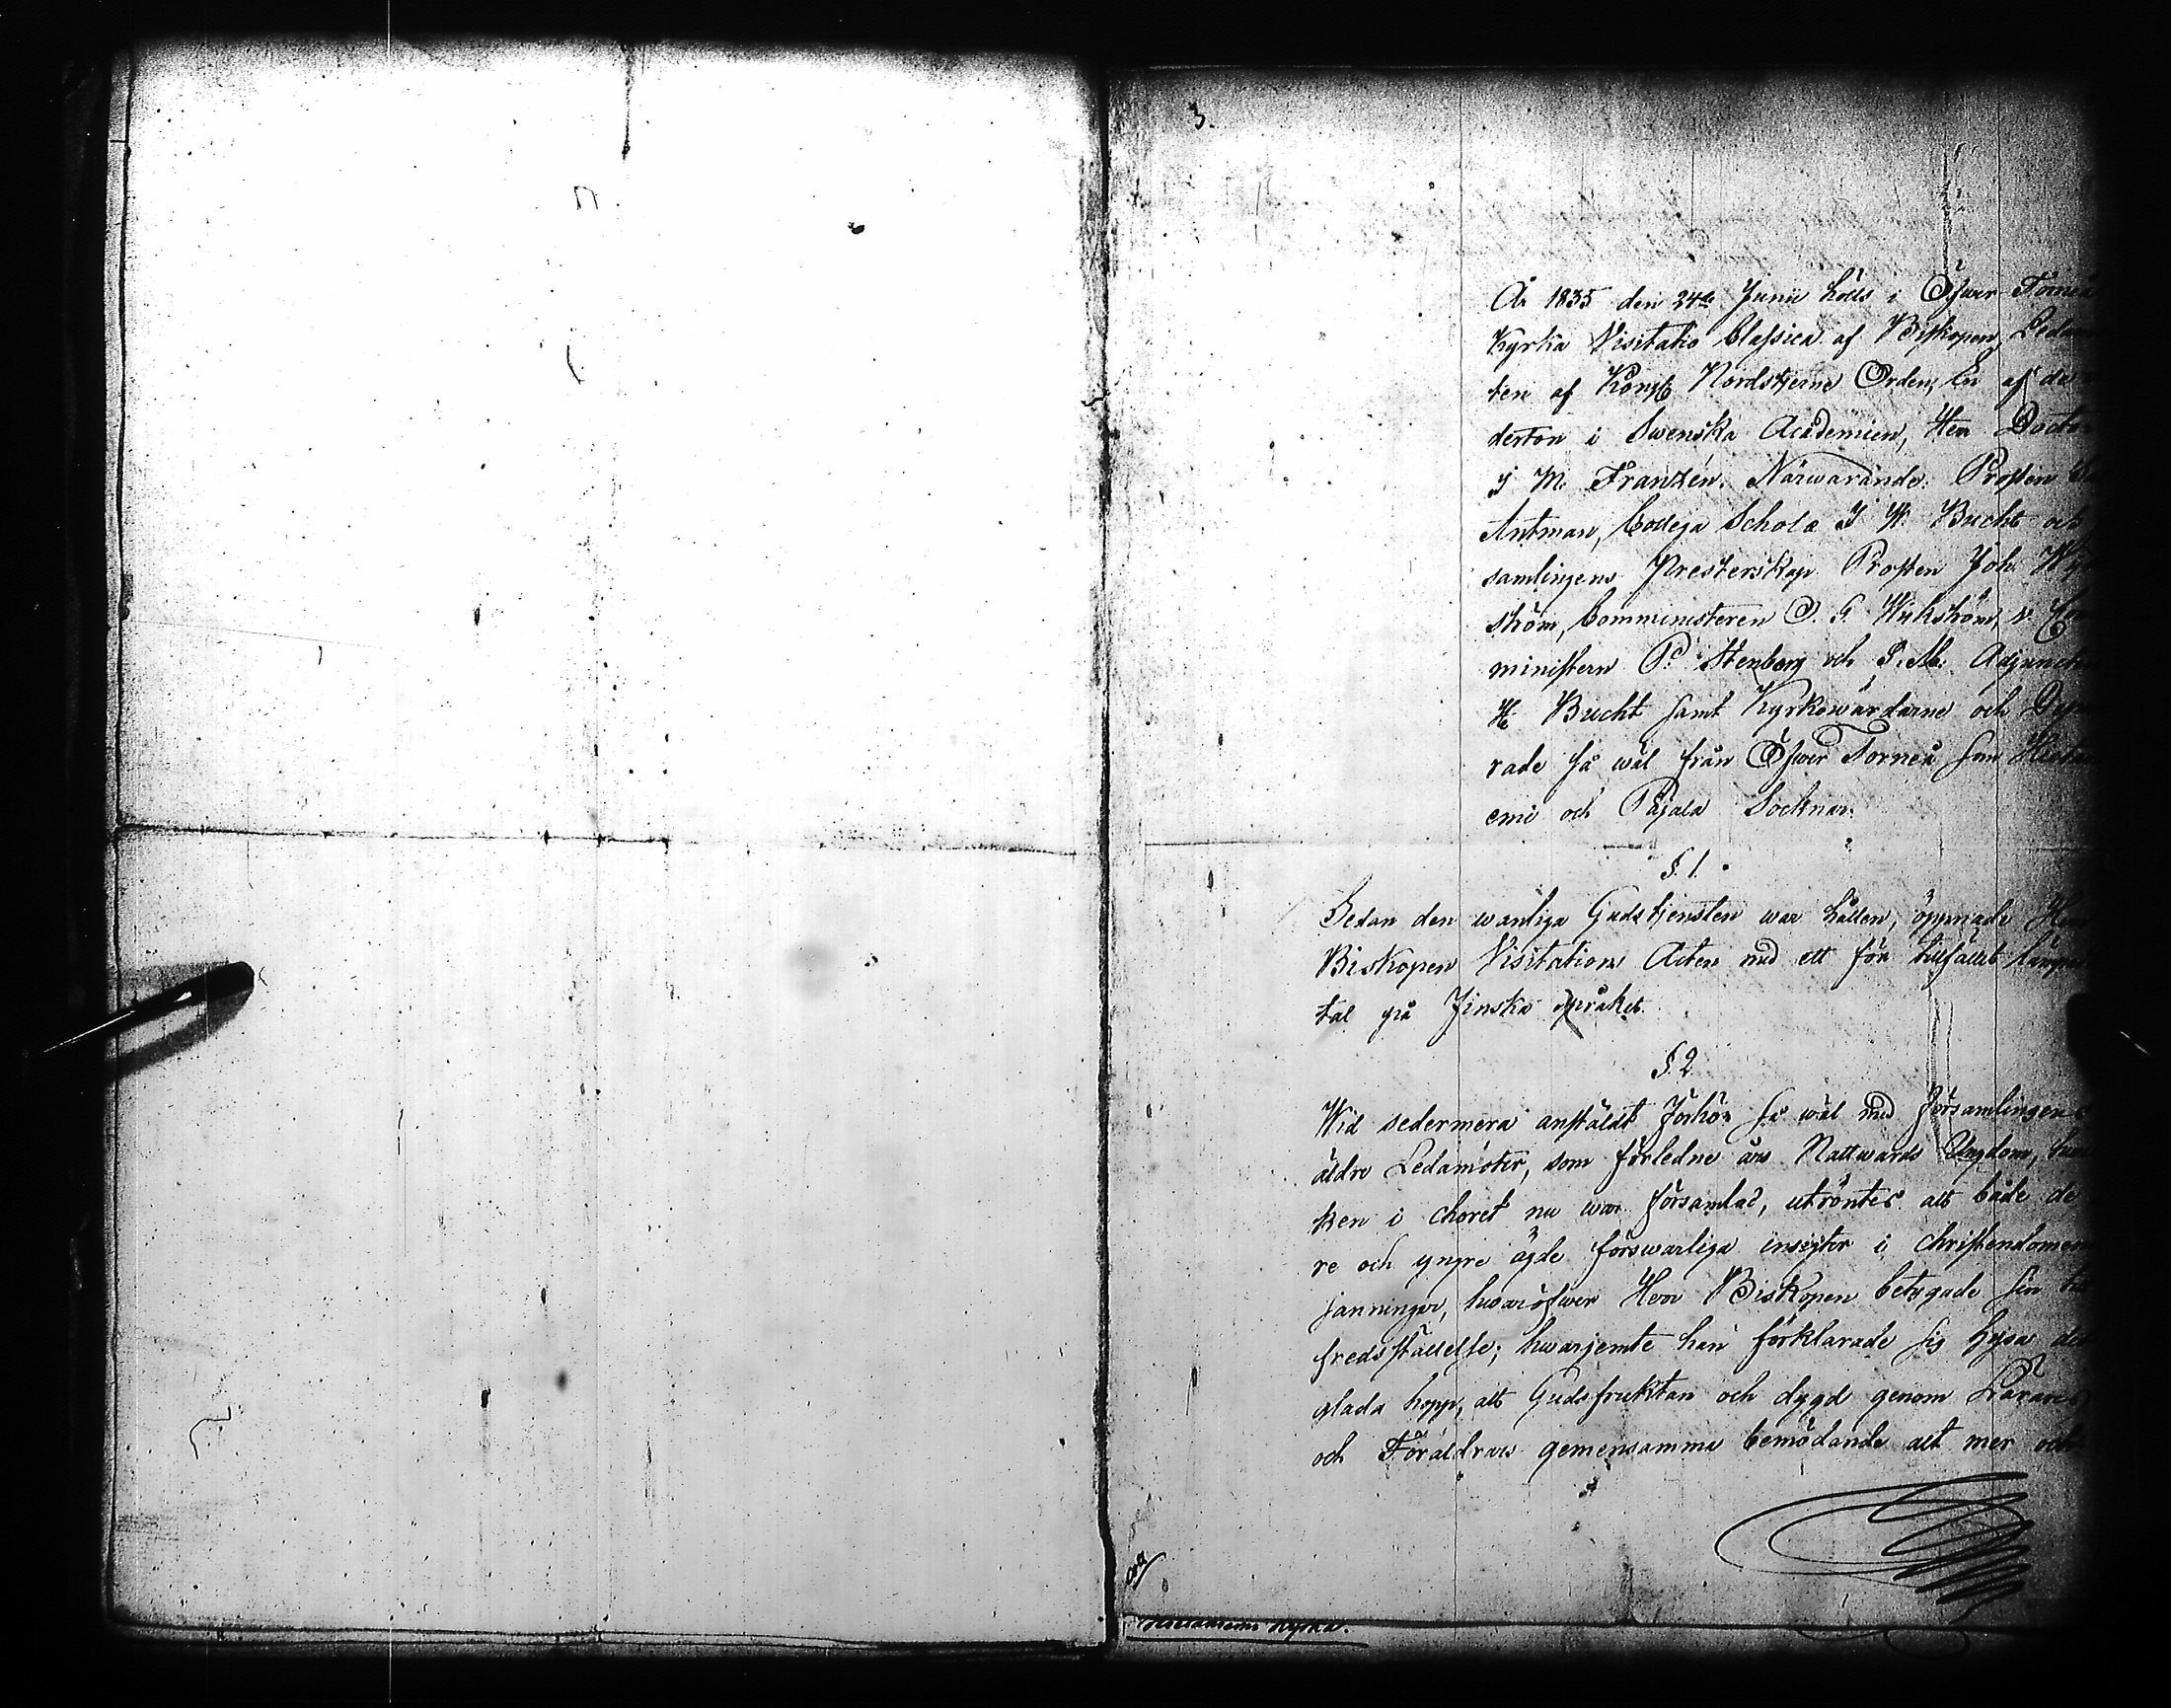 3.
År 1835 den 24de Junii hölls i Öfwer Torneå
Kyrka Visitatio Classica af Biskopen, Ledam
ten af Kongl Nordstjerne Orden, En af de a
derton i Swenska Academien, Herr Doctor
F M. Franzén. Närwarande: Prosten
Antman, Collega Scholæ I W. Bucht och
samlingens Presterskap Prosten Joh. Wik
ström, Comministeren O. G. Wikström, v. Com
ministern P. Stenborg och S. M. Adjuncten
H. Bucht samt Kyrkowärdarne och
rade så wäl från Öfwer Torneå som Hietani
emi och Pajala Socknar.
§. 1.
Sedan den wanliga Gudstjensten war hållen, öppnade Herr
Biskopen Visitations Acten med ett för tillfället lämpadt
tal på Finska språket.
§. 2
Wid sedermera anstäldt Förhör så wäl med Församlingens
äldre Ledamöter, som förledne års Nattwards Ungdom, hwil
ken i choret nu war församlad, utröntes att både de
re och yngre ägde förswarliga insigter i christendomens
sanningar, hwaröfwer Herr Biskopen betygade sin till
fredsställelse; hwarjemte han förklarade sig hysa det
glada hopp, att Gudsfruktan och dygd genom Lärares
och Föräldrars gemensamma bemödande allt mer och
Hietaniemi Kyrka.